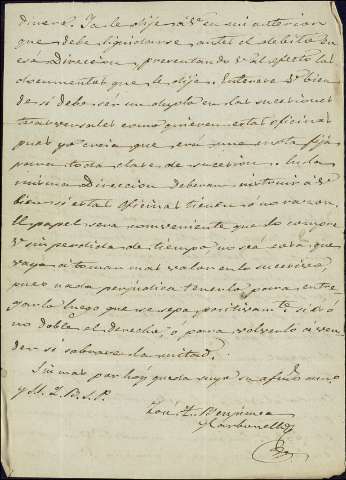 dinero. Ya le dije a V. en mi anterior
que debe liquidarse antes el debito en
esa Direccion, presentando V. al efecto los
documentos que le dije. Enterese V. bien
de si debe ser un duplo en las sucesiones
trasversales como quieren estas oficinas
pues yo creia que era una cuota fija
para toda clase de sucesion. En la
misma Direccion deberan instruir a V.
bien si estas oficinas tienen o no razon.
El papel sera conveniente que lo compre
V. sin perdida de tiempo no sea cosa que
vaya a tomar mas valor en lo sucesivo,
pues nada perjudica tenerlo para entre
garlo luego que se sepa positivamte. si es ó
no doble el derecho, o para volverlo a ven
der si sobrase la mitad.
Sin mas por hoy queda suyo su afmo. amigo
y S. S. Q. B. S. M.
José
Carbonell